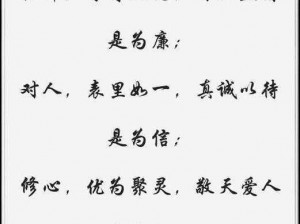 是为廉；
对人，表里如一，真诚以待
是为信；
修心，优为聚灵，敬天爱人